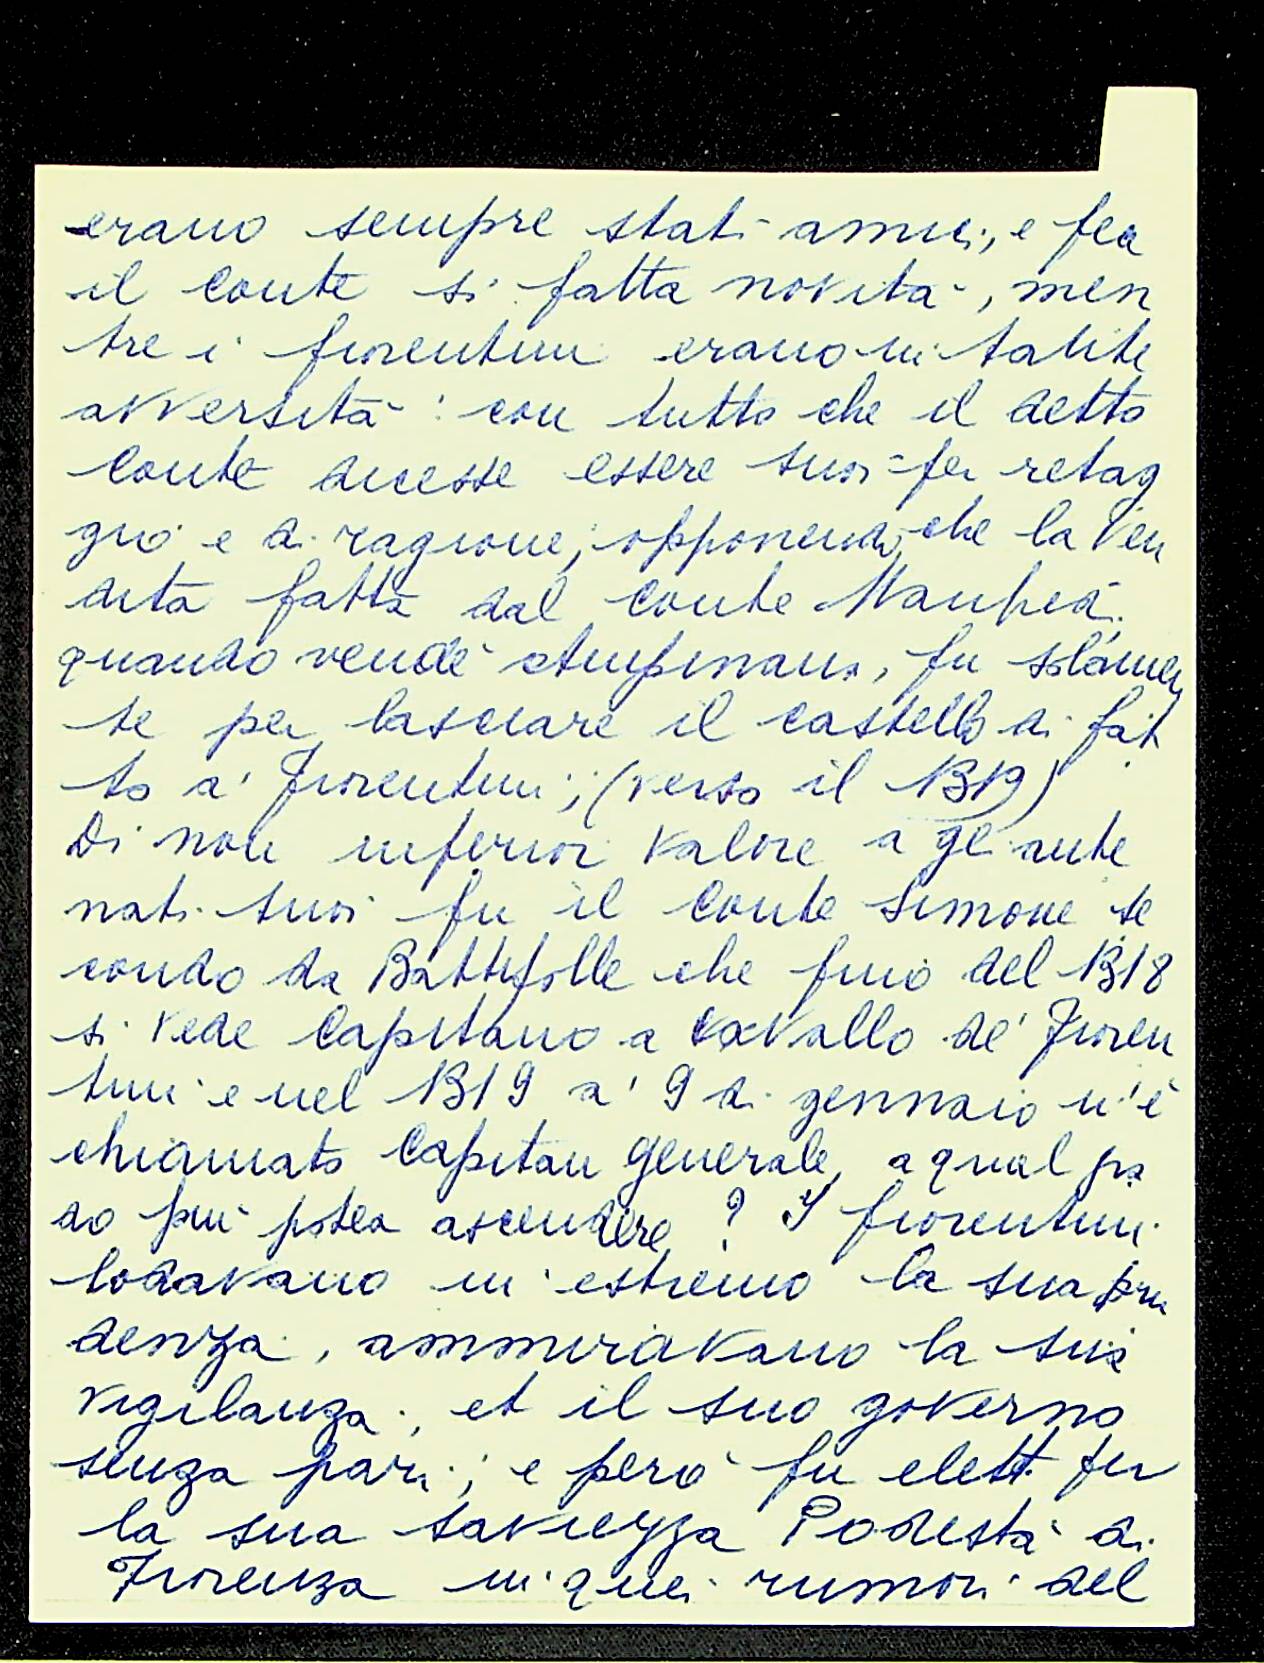 erano sempre stati amici, e fea
il conte sì fatta novità, men
tre i fiorentini erano in tali te
avversità: con tutto che il detto
conte dicesse essere suoi per retag
gio e di ragione, opponendo, che la ven
dita fatta dal conte Manfredi
quando vendè Ampinana, fu solamen
te per lasciare il castello di fat
to a' Fiorentini; (verso il 1319)
Di non inferior valore a gli ante
nati suoi fu il conte Simone se
condo da Battifolle che fino del 1318
si vede Capitano a cavallo de' Fioren
tini e nel 1319 a' 9 di gennaio n'è
chiamato Capitan generale, a qual
do più potea ascendere? I fiorentini
lodavano in estremo la sua pru
denza, ammiravano la sua
vigilanza, et il suo governo
senza pari; e però fu elett. per
la sua saviezza Podestà di
Fiorenza in quei rumori del